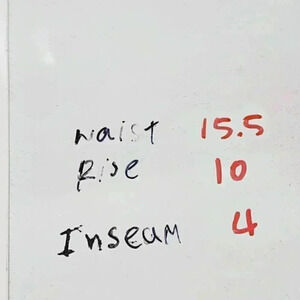 waist 15.5
Rise 10
Inseam 4